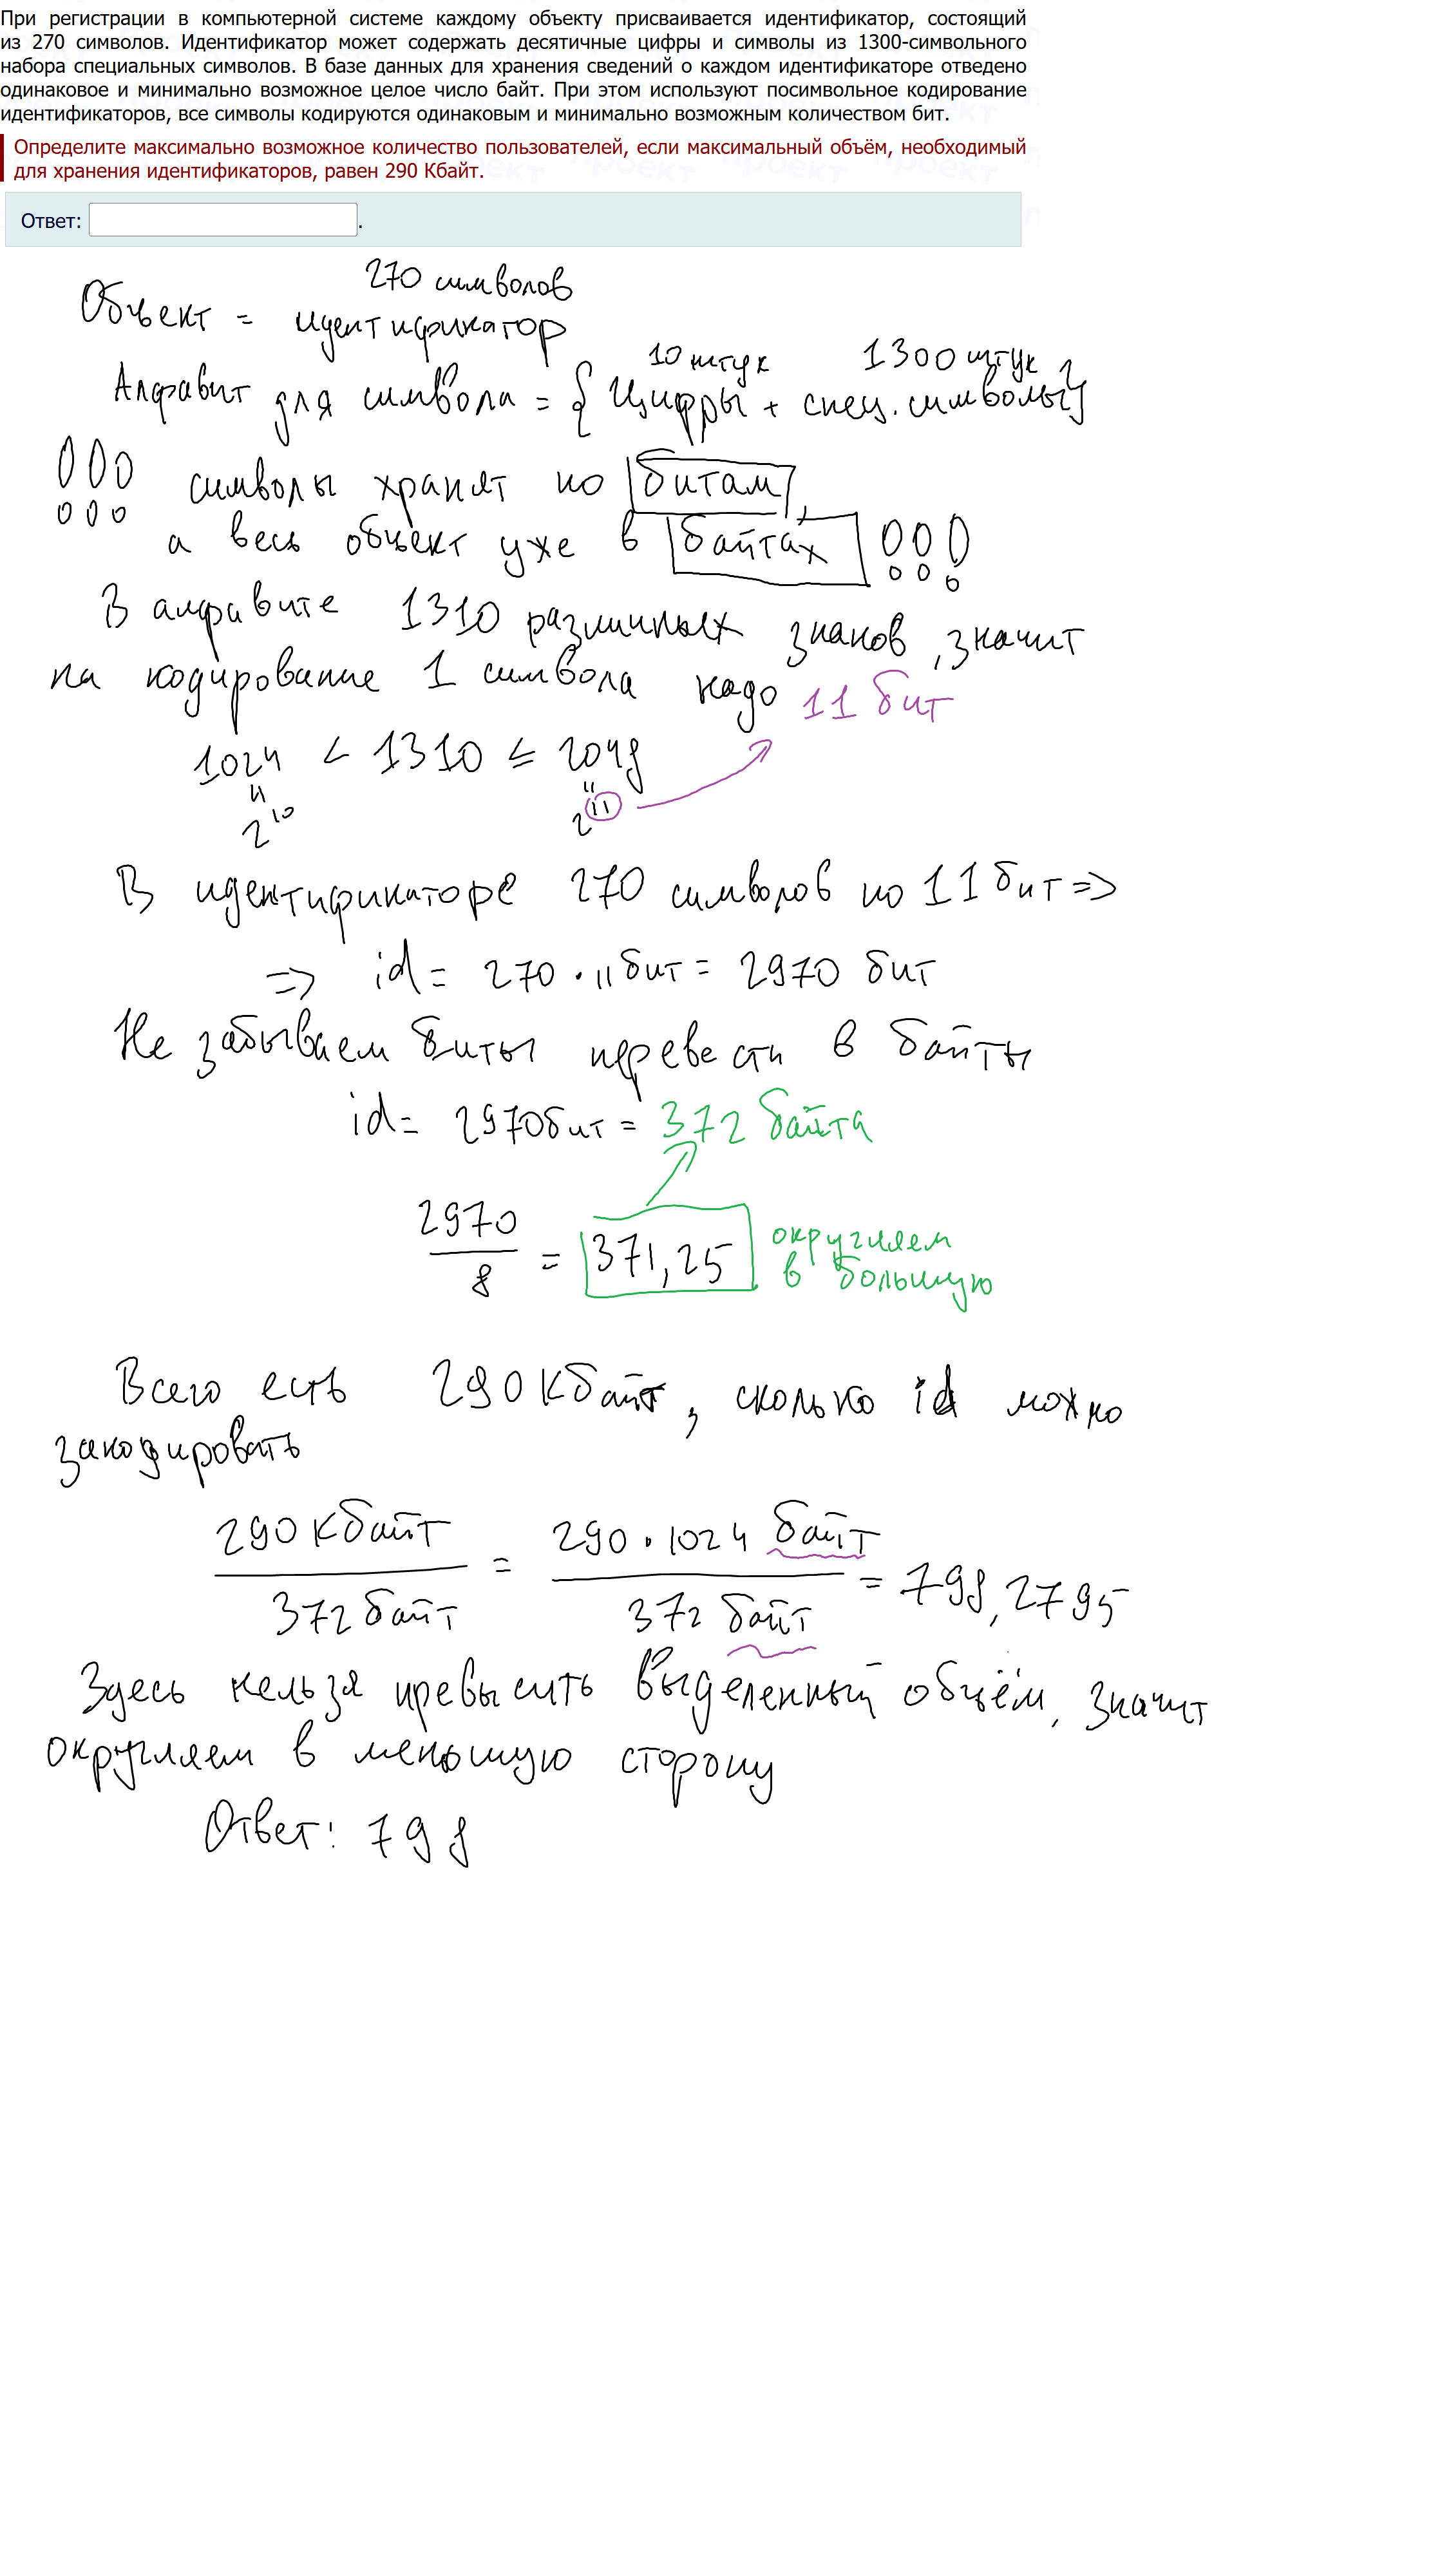 При регистрации в компьютерной системе каждому объекту присваивается идентификатор, состоящий
из 270 символов. Идентификатор может содержать десятичные цифры и символы из 1300-символьного
набора специальных символов. В базе данных для хранения сведений о каждом идентификаторе отведено
одинаковое и минимально возможное целое число байт. При этом используют посимвольное кодирование
идентификаторов, все символы кодируются одинаковым и минимально возможным количеством бит.
Определите максимально возможное количество пользователей, если максимальный объём, необходимый
для хранения идентификаторов, равен 290 Кбайт.
Ответ: .
270 символов
Объект = идентификатор
10 штук 1300 штук
Алфавит для символа = {Цифры + спец. символы}
!!! символы хранят по битам,
а весь объект уже в байтах !!!
В алфавите 1310 различных знаков, значит
на кодирование 1 символа надо 11 бит
1024 < 1310 ≤ 2048
" "
2^10 2^11
В идентификаторе 270 символов по 11 бит =>
=> id = 270 · 11 бит = 2970 бит
Не забываем биты перевести в байты
id = 2970 бит = 372 байта
2970
/ 8 = 371,25 округляем
в большую
Всего есть 290 Кбайт, сколько id можно
закодировать
290 Кбайт / 372 байт = 290 · 1024 байт / 372 байт = 798,2795
Здесь нельзя превысить выделенный объём, значит
округляем в меньшую сторону
Ответ: 798